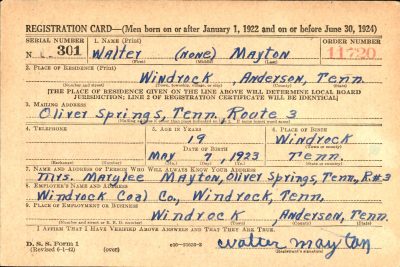 REGISTRATION CARD—(Men born on or after January 1, 1922 and on or before June 30, 1924)
SERIAL NUMBER 1. NAME (Print) ORDER NUMBER
N 301 Walter (NONE) Mayton 11720
(First) (Middle) (Last)
2. PLACE OF RESIDENCE (Print)
Windrock, Anderson, Tenn.
(Number and street) (Town, township, village, or city) (County) (State)
[THE PLACE OF RESIDENCE GIVEN ON THE LINE ABOVE WILL DETERMINE LOCAL BOARD
JURISDICTION; LINE 2 OF REGISTRATION CERTIFICATE WILL BE IDENTICAL]
3. MAILING ADDRESS
Oliver Springs, Tenn, Route 3
4. TELEPHONE 5. AGE IN YEARS 6. PLACE OF BIRTH
19 Windrock
DATE OF BIRTH (Town or county)
May 7, 1923 Tenn.
(Exchange) (Number) (Mo.) (Day) (Yr.) (State or country)
7. NAME AND ADDRESS OF PERSON WHO WILL ALWAYS KNOW YOUR ADDRESS
Mrs. Marylee Mayton, Oliver Springs, Tenn, R#3
8. EMPLOYER'S NAME AND ADDRESS
Windrock Coal Co, Windrock, Tenn,
9. PLACE OF EMPLOYMENT OR BUSINESS
Windrock, Anderson, Tenn.
(Number and street or R. F. D. number) (Town) (County) (State)
I AFFIRM THAT I HAVE VERIFIED ABOVE ANSWERS AND THAT THEY ARE TRUE.
D. S. S. Form 1
(Revised 6-1-42) (over) walter mayton
(Registrant's signature)